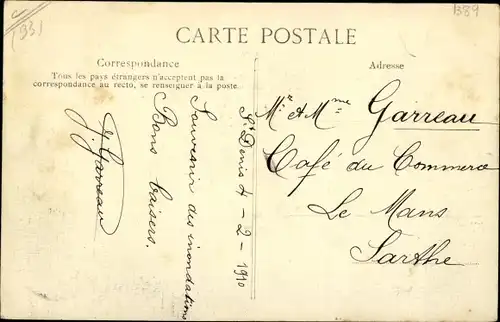 (93)
1389
CARTE POSTALE
Correspondance
Tous les pays étrangers n'acceptent pas la
correspondance au recto, se renseigner à la poste.
Adresse
St Denis 4-2-1910
Souvenir des inondations
Bons baisers.
G. Garreau
Mr et Mme Garreau
Café du Commerce
Le Mans
Sarthe